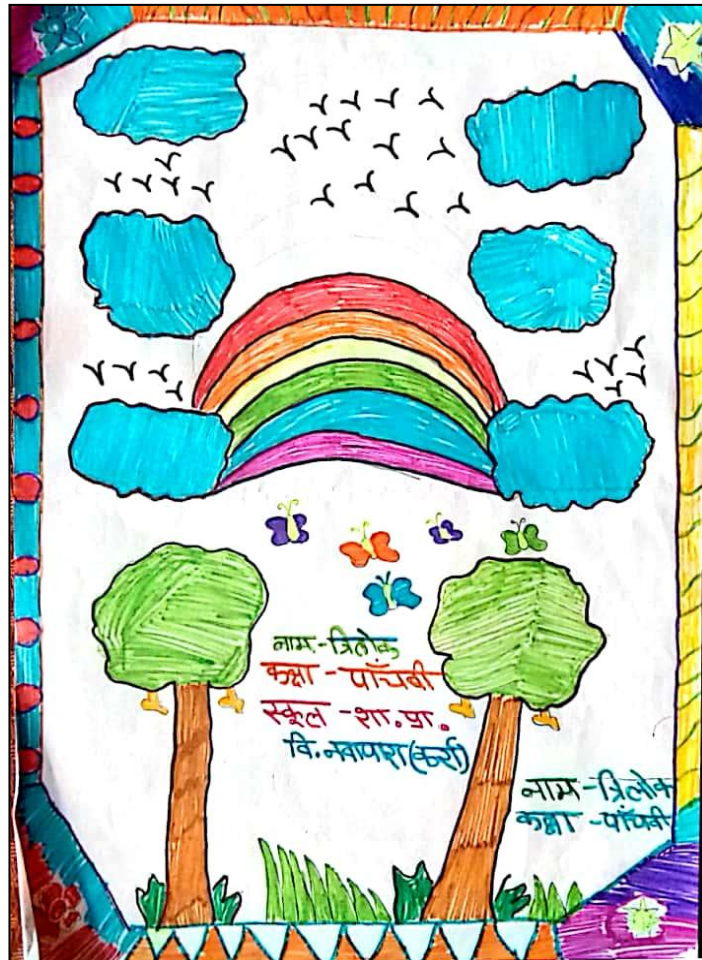 नाम-त्रिलोक
कक्षा - पाँचवी
स्कूल - शा.प्रा.
वि.नवापारा(कर्रा)
नाम-त्रिलोक
कक्षा -पाँचवी